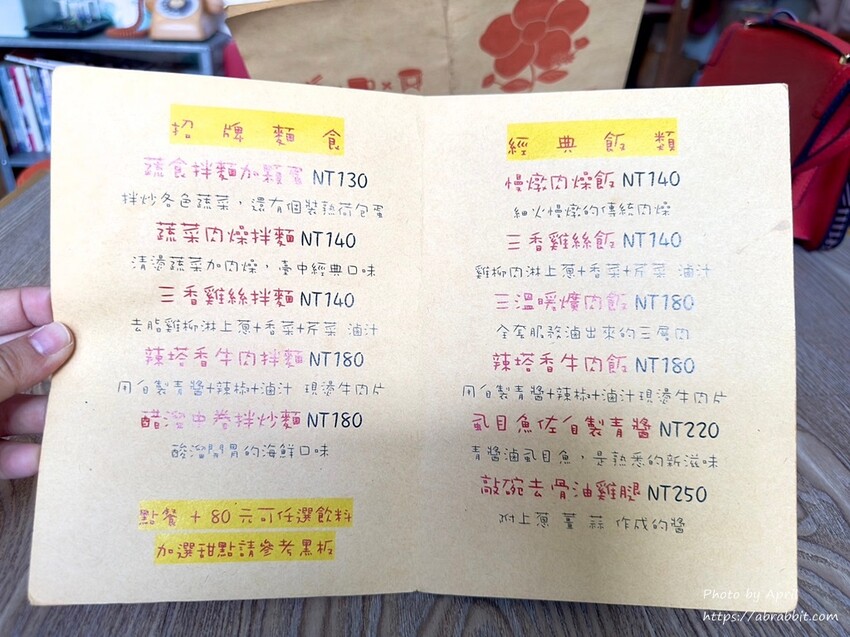 招牌麵食
蔬食拌麵加顆蛋 NT130
拌炒各色蔬菜，還有個裝熟荷包蛋
蔬菜肉燥拌麵 NT140
清燙蔬菜加肉燥，臺中經典口味
三香雞絲拌麵 NT140
去脂雞柳淋上蔥+香菜+芹菜 滷汁
辣塔香牛肉拌麵 NT180
用自製青醬+辣椒+滷汁 現燙牛肉片
醋溜中卷拌炒麵 NT180
酸溜開胃的海鮮口味
點餐 + 80 元可任選飲料
加選甜點請參考黑板
經典飯類
慢燉肉燥飯 NT140
細火慢燉的傳統肉燥
三香雞絲飯 NT140
雞柳肉淋上蔥+香菜+芹菜 滷汁
三溫暖爌肉飯 NT180
全套服務滷出來的三層肉
辣塔香牛肉飯 NT180
用自製青醬+辣椒+滷汁 現燙牛肉片
虱目魚佐自製青醬 NT220
青醬滷虱目魚，是熟悉的新滋味
敲碗去骨油雞腿 NT250
附上蔥 薑 蒜 作成的醬
Photo by April
https://abrabbit.com